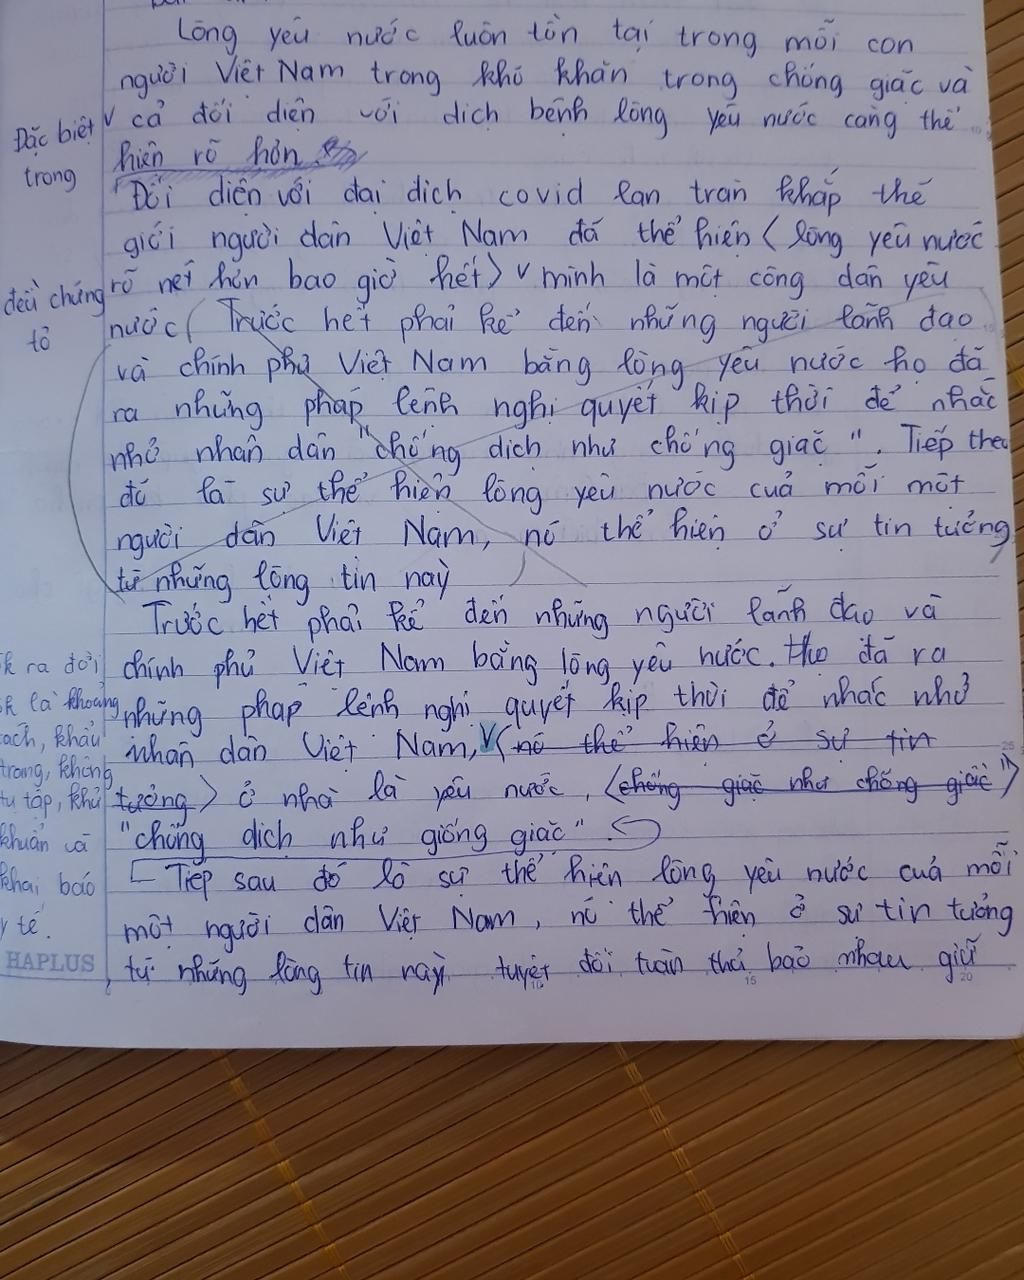 Lòng yêu nước luôn tồn tại trong mỗi con
người Việt Nam trong khó khăn trong chống giặc và
Đặc biệt
trong
v cả đối diện với dịch bệnh lòng yêu nước càng thể
hiện rõ hơn
Đối diện với đại dịch covid lan tràn khắp thế
giới người dân Việt Nam đã thể hiện (lòng yêu nước
đều chứng
tỏ
rõ nét hơn bao giờ hết) v mình là một công dân yêu
nước (Trước hết phải kể đến những người lãnh đạo
và chính phủ Việt Nam bằng lòng yêu nước họ đã
ra những pháp lệnh nghị quyết kịp thời để nhắc
nhở nhân dân "chống dịch như chống giặc". Tiếp theo
đó là sự thể hiện lòng yêu nước của mỗi một
người dân Việt Nam, nó thể hiện ở sự tin tưởng
từ những lòng tin này)
Trước hết phải kể đến những người lãnh đạo và
k ra đời
k là khoảng
ách, khẩu
trang, không
tụ tập, khử
khuẩn và
khai báo
y tế.
chính phủ Việt Nam bằng lòng yêu nước. Họ đã ra
những pháp lệnh nghị quyết kịp thời để nhắc nhở
nhân dân Việt Nam, v (nó thể hiện ở sự tin
tưởng) ở nhà là yêu nước, (chống giặc như chống giặc")
"chống dịch như giống giặc"
Tiếp sau đó là sự thể hiện lòng yêu nước của mỗi
một người dân Việt Nam, nó thể hiện ở sự tin tưởng
từ những lòng tin này tuyệt đối tuân thủ bảo nhau giữ
HAPLUS
10
15
20
25